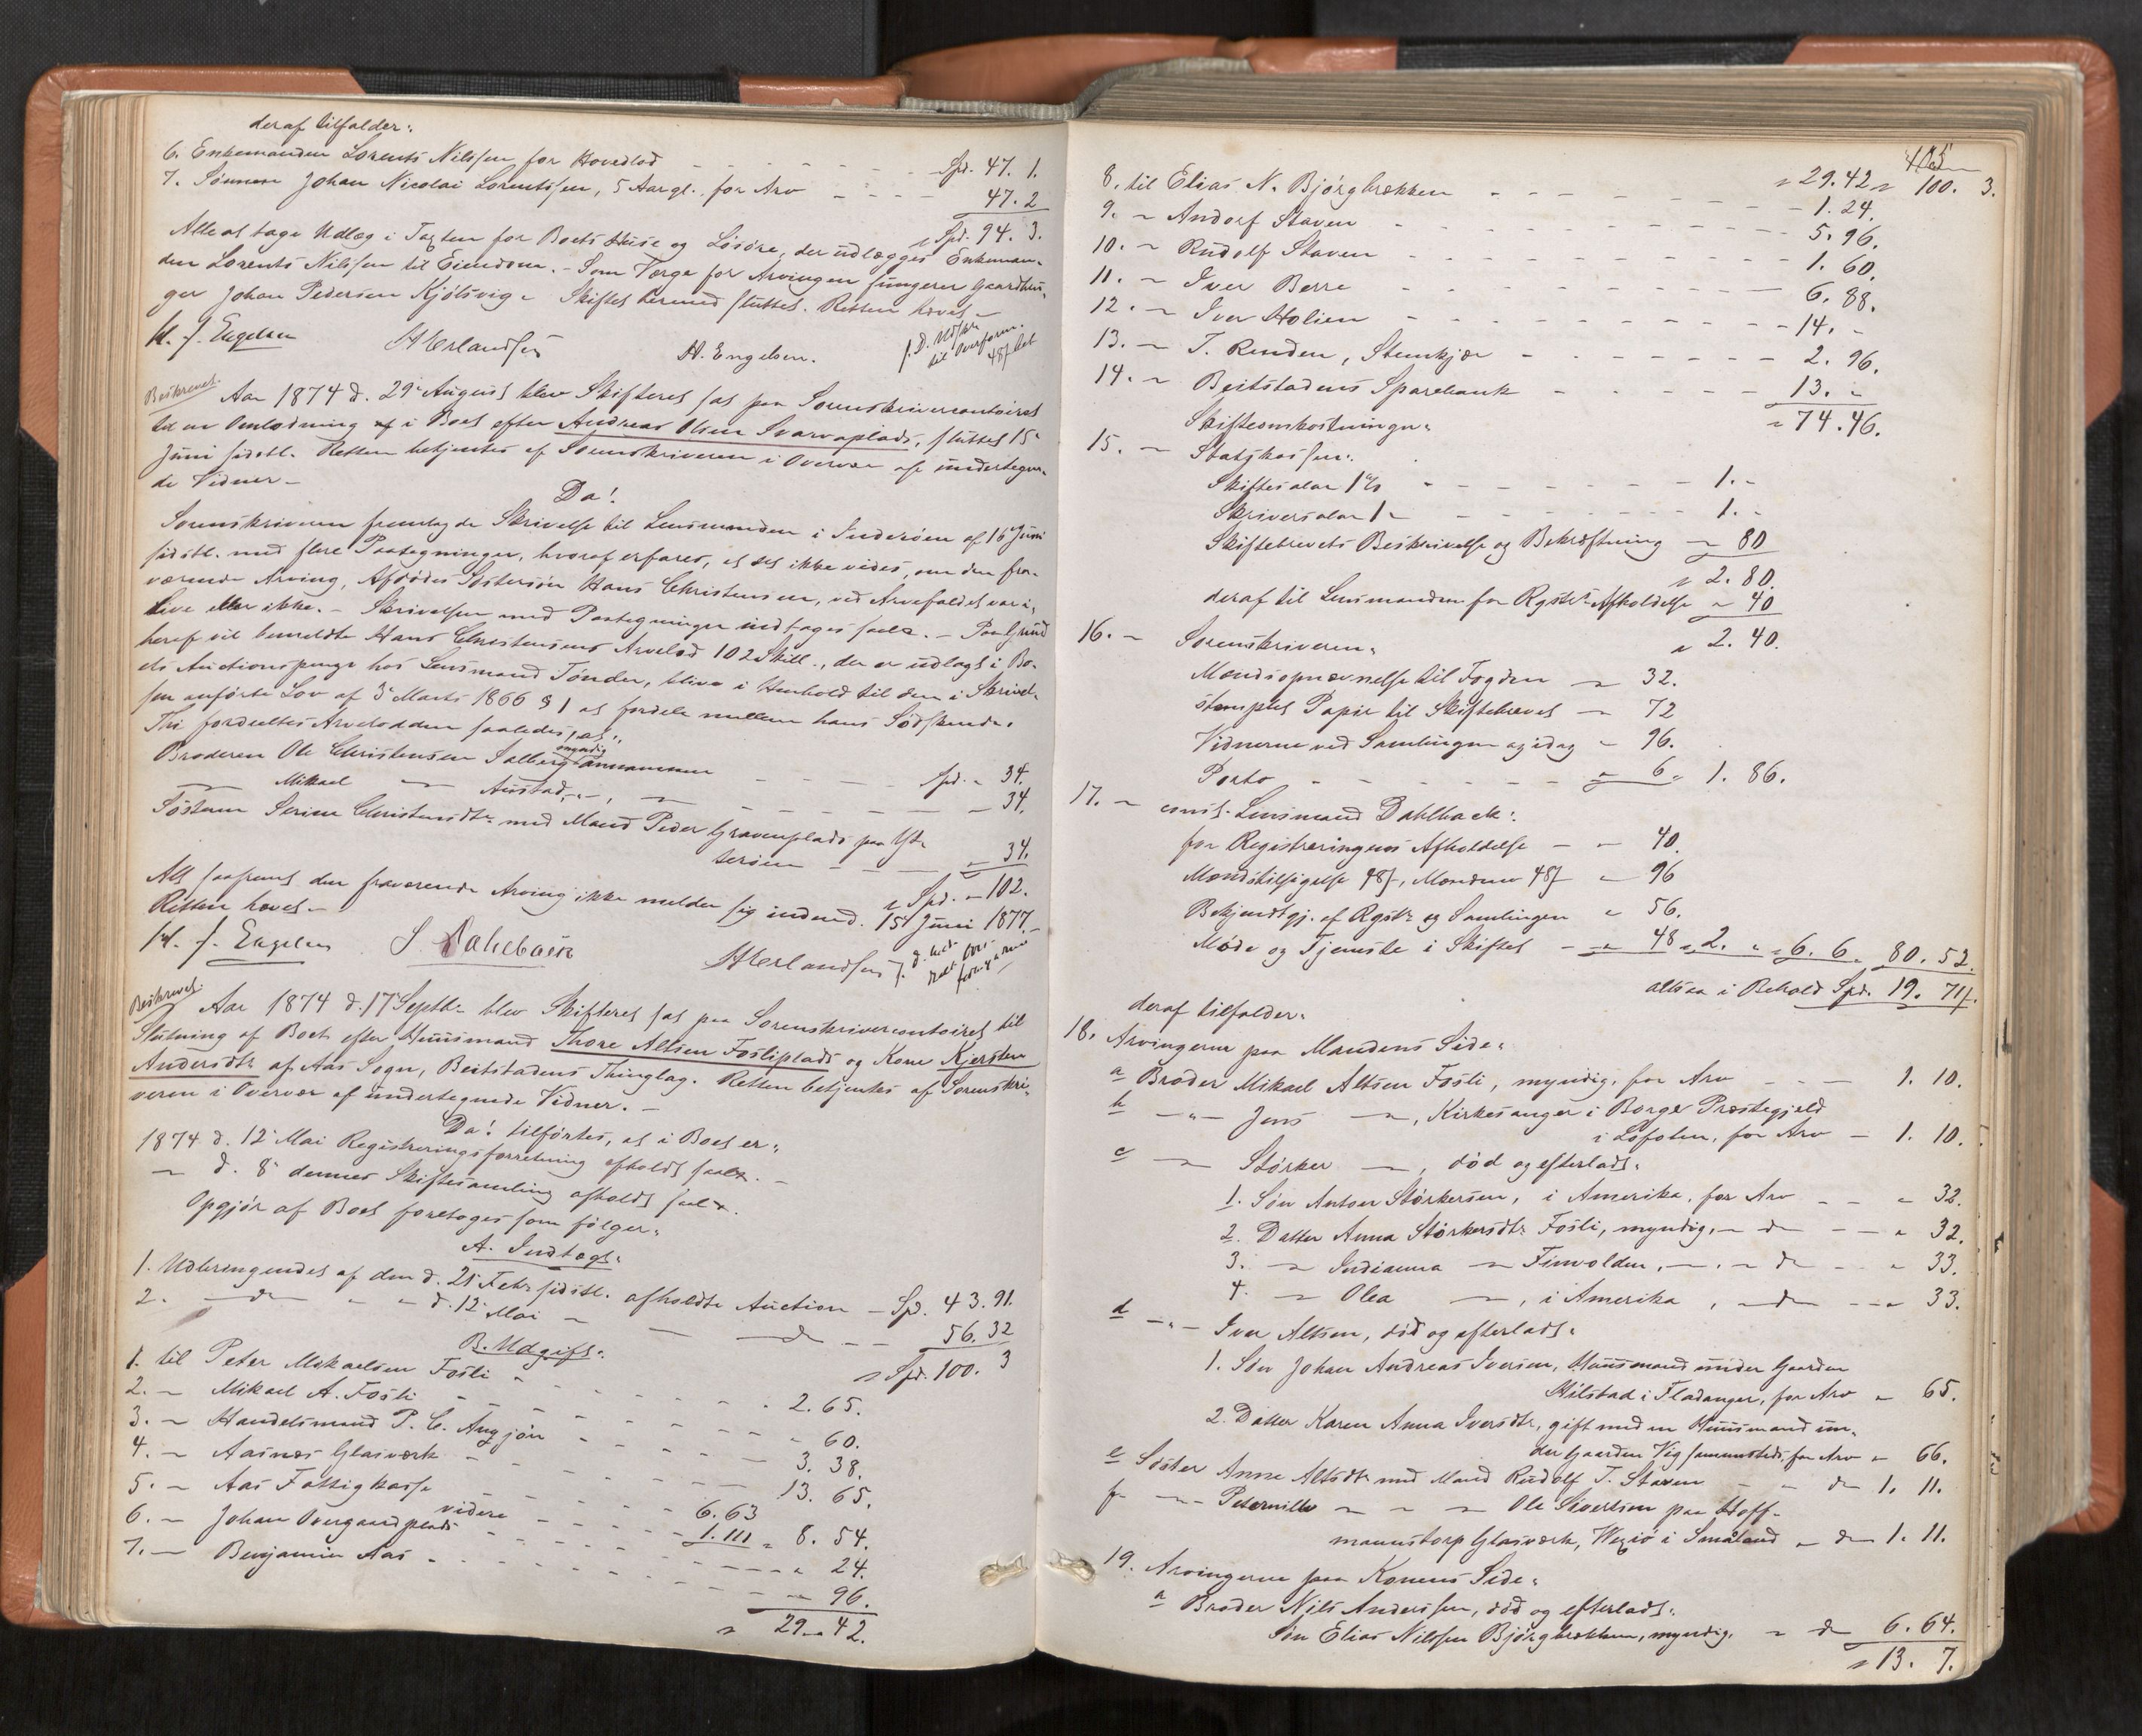 deraf tilfalder:
6. Enkemanden Lorents Nilssen for Hovedlod - - - - Spd. 47. 1.
7. Sønnen Johan Nicolai Lorentssen, 5 Aar gl. for Arv - - - - 47. 2
Spd. 94. 3.
Alle at tage Udlæg i Taxten for Boets Huse og Løsøre, der udlægges Enkeman-
den Lorents Nilssen til Eiendom. - Som Værge for Arvingen fungerer Gaardbru-
ger Johan Pedersen Kjølsvig. Skiftet hermed sluttet. Retten hævet.
H. J. Engelsen H Erlandsen H. Engelsen.
Beskrevet.
Aar 1874 d. 29de August blev Skifteret sat paa Sorenskrivercontoiret
til en Omlodning i Boet efter Andreas Olsen Svarvaplads, sluttet 15de
Juni sidstl. Retten betjentes af Sorenskriveren i Overvær af undertegne-
de Vidner -
Da!
Sorenskriveren fremlagde Skrivelse til Lensmanden i Inderøen af 16de Juni
sidstl. med flere Paategninger, hvoraf erfares, at det ikke vides, om den fra-
værende Arving, Afdødes Søstersøn Hans Christensen, ved Arvefaldet var i
Live eller ikke. - Skrivelsen med Paategninger indtages saal. - Paa Grund
heraf vil bemeldte Hans Christensens Arvelod 102 Skill., der er udlagt i Bo-
ets Auctionspenge hos Lensmand Tønder, blive i Henhold til den i Skrivel-
sen anførte Lov af 3de Marts 1866 § 1 at fordele mellem hans Sødskende.
Thi fordeeltes Arvelodden saaledes, at:
Broderen Ole Christensen Salberg annammer myndig - - - - Spd. " 34.
— Mikael — Austad, - " - , — - - - - 34.
Søsteren Serine Christensdtr med Mand Peder Gravenplads paa Yt-
terøen - - - " 34.
Spd. " 102.
Alt saafremt den fraværende Arving ikke melder sig inden d. 15de Juni 1877.-
Retten hævet -
H. J. Engelsen S Dahlback H Erlandsen
Beskrevet.
Aar 1874 d. 17de Septbr blev Skifteret sat paa Sorenskrivercontoiret til
Slutning af Boet efter Huusmand Thore Altsen Fosliplads og Kone Kjersten
Andersdtr af Aas Sogn, Beitstadens Thinglag. Retten betjentes af Sorenskri-
veren i Overvær af undertegnede Vidner. -
Da! tilførtes, at i Boet er:
1874 d. 12te Mai Registreringsforretning afholdt saal. -
— d. 8de dennes Skiftesamling afholdt saal.
Opgjør af Boet foretoges som følger:
A. Indtægt:
1. Udbringendet af den d. 21de Febr sidstl. afholdte Auction - Spd. 43. 91.
2. — do — " " d. 12te Mai — — do - - 56. 32
Spd. 100. 3
B. Udgift:
1. til Peter Mikaelsen Fosli - - - - 2. 65.
2. - Mikael A. Fosli - - - - 60.
3. - Handelsmand P. C. Angjøn - - - - 3. 38.
4. - Aasnæs Glasværk - - - - 13. 65.
5. - Aas Fattigkasse - - - - 6. 63
videre - - - - 1. 111 " 8. 54.
6. - Johan Overgaardplads - - - - " 24.
7. - Benjamin Aas - - - - 96.
29. 42.
405
" 29. 42 " 100. 3.
8. til Elias N. Bjørgbrækken - - - - 1. 24.
9. - Andorf Staven - - - - 5. 96.
10. - Rudolf Staven - - - - 1. 60.
11. - Iver Berre - - - - 6. 88.
12. - Iver Holien - - - - 14. -
13. - T. Renden, Stenkjær - - - - 2. 96.
14. - Beitstadens Sparebank - - - - 13. -
" 74. 46.
Skifteomkostninger:
15. - Statskassen:
Skiftesalar 1 % - - - - 1. -
Skriversalar 1 - - - - - 1. -
Skiftebrevets Beskrivelse og Bekræftning - 80
" 2. 80.
deraf til Lensmanden for Rgstr Afholdelse " 40
" 2. 40.
16. - Sorenskriveren:
Mændsopnævnelse til Fogden - 32.
stemplet Papir til Skiftebrevet - 72
Vidnerne ved Samlingen og idag - 96.
Porto - - - - " 6 " 1. 86.
17. - const. Lensmand Dahlback:
for Registreringens Afholdelse - - 40.
Mændstilsigelse 48ſ, Mændene 48ſ " 96
Bekjendtgj. af Rgstr og Samlingen " 56.
Møde og Tjeneste i Skiftet - " 48 " 2. " " 6. 6. 80. 52.
altsaa i Behold Spd. 19. 71ſ.
deraf tilfalder:
18. Arvingerne paa Mandens Side:
a Broder Mikael Altsen Fosli, myndig, for Arv - - - 1. 10.
b - " - Jens — , Kirkesanger i Borge Præstegjeld
i Lofoten, for Arv - 1. 10.
c — Størker — , død og efterladt:
1. Søn Anton Størkersen, i Amerika, for Arv - - " 32.
2. Datter Anna Størkersdtr Fosli, myndig, - do - - " 32.
3. — Indianna — Finvolden, -, - do - - " 33.
4. — Olea — , i Amerika , - do - - " 33.
d - " - Iver Altsen, død og efterladt:
1. Søn Johan Andreas Iversen, Huusmand under Gaarden
Hilstad i Fladanger, for Arv " 65.
2. Datter Karen Anna Iversdtr, gift med en Huusmand un-
der Gaarden Vig sammesteds, for Arv " 66.
e Søster Anne Altsdtr med Mand Rudolf T. Staven - " do 1. 11.
f - " - Peternille — " — Ole Sivertsen paa Hoff-
mannstorp Glasværk, Wexiö i Småland " do 1. 11.
19. Arvingerne paa Konens Side:
a Broder Nils Anderssen, død og efterladt:
Søn Elias Nilssen Bjørgbrækken, myndig. " do 6. 64.
" 13. 7.